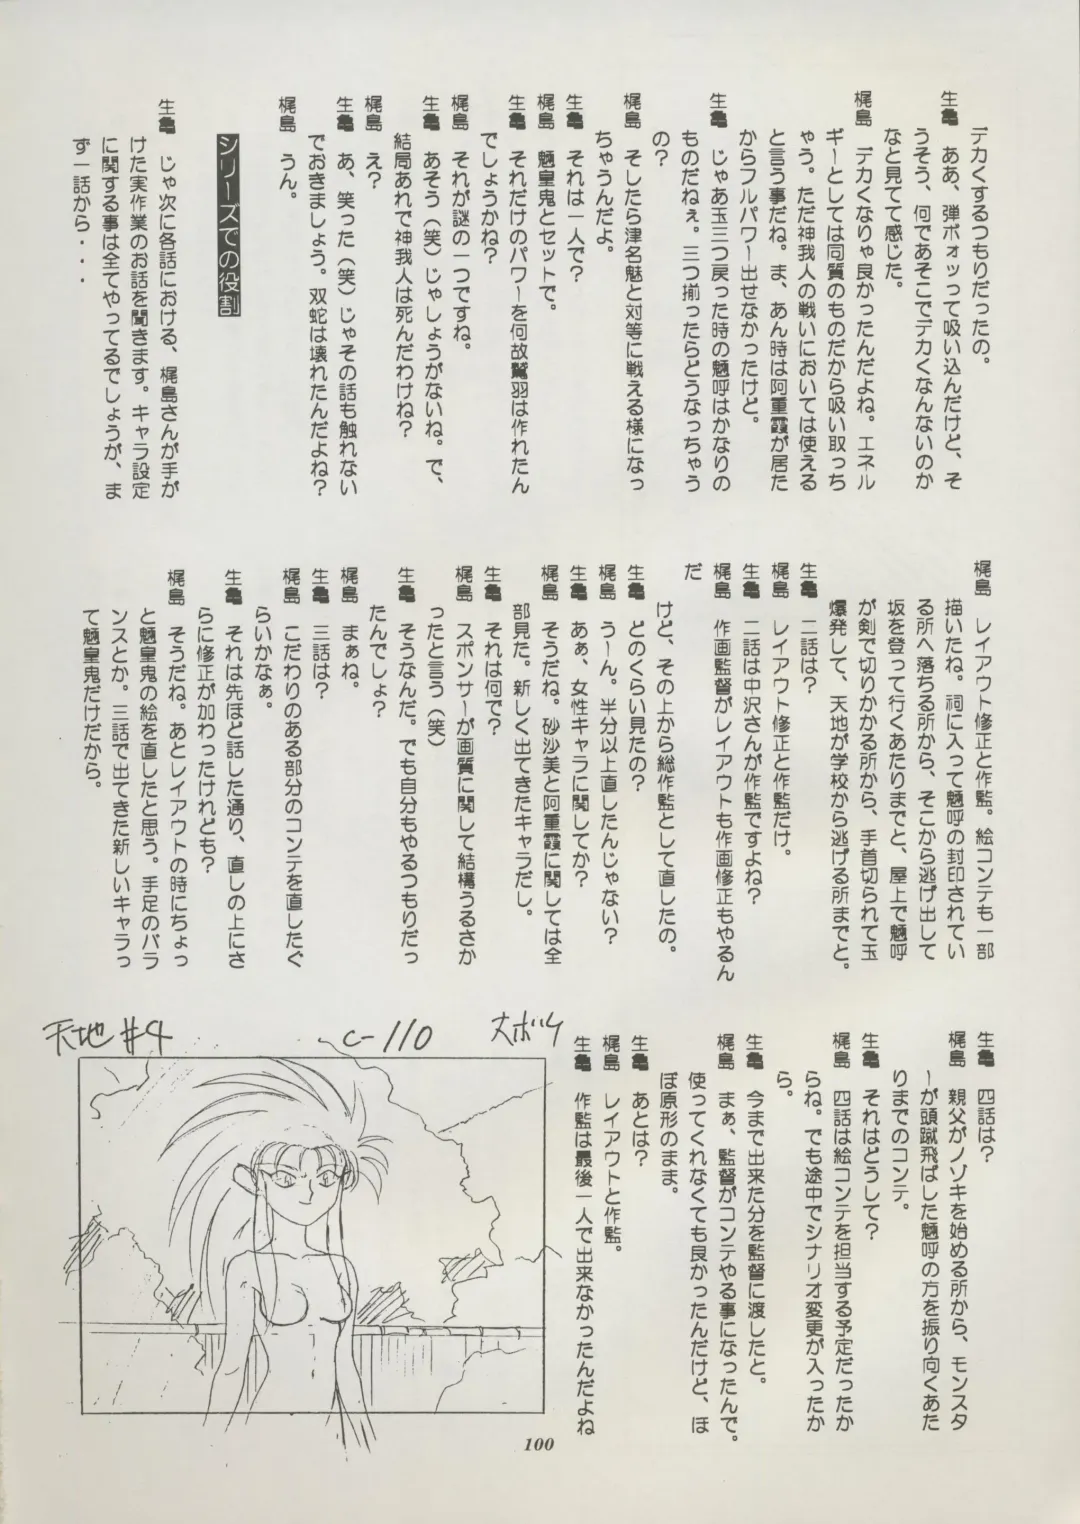 デカくするつもりだったの。
生亀　ああ、弾ボォッって吸い込んだけど、そ
うそう、何であそこでデカくなんないのか
なと見てて感じた。
梶島　デカくなりゃ良かったんだよね。エネル
ギーとしては同質のものだから吸い取っち
ゃう。ただ神我人の戦いにおいては使える
と言う事だね。ま、あん時は阿重霞が居た
からフルパワー出せなかったけど。
生亀　じゃあ玉三つ戻った時の魎呼はかなりの
ものだねぇ。三つ揃ったらどうなっちゃう
の？
梶島　そしたら津名魅と対等に戦える様になっ
ちゃうんだよ。
生亀　それは一人で？
梶島　魎皇鬼とセットで。
生亀　それだけのパワーを何故鷲羽は作れたん
でしょうかね？
梶島　それが謎の一つですね。
生亀　あそう（笑）じゃしょうがないね。で、
結局あれで神我人は死んだわけね？
梶島　え？
生亀　あ、笑った（笑）じゃその話も触れない
でおきましょう。双蛇は壊れたんだよね？
梶島　うん。
シリーズでの役割
生亀　じゃ次に各話における、梶島さんが手が
けた実作業のお話を聞きます。キャラ設定
に関する事は全てやってるでしょうが、ま
ず一話から・・・
梶島　レイアウト修正と作監。絵コンテも一部
描いたね。祠に入って魎呼の封印されてい
る所へ落ちる所から、そこから逃げ出して
坂を登って行くあたりまでと、屋上で魎呼
が剣で切りかかる所から、手首切られて玉
爆発して、天地が学校から逃げる所までと。
生亀　二話は？
梶島　レイアウト修正と作監だけ。
生亀　二話は中沢さんが作監ですよね？
梶島　作画監督がレイアウトも作画修正もやるん
だ
けど、その上から総作監として直したの。
生亀　どのくらい見たの？
梶島　うーん。半分以上直したんじゃない？
生亀　あぁ、女性キャラに関してか？
梶島　そうだね。砂沙美と阿重霞に関しては全
部見た。新しく出てきたキャラだし。
生亀　それは何で？
梶島　スポンサーが画質に関して結構うるさか
ったと言う（笑）
生亀　そうなんだ。でも自分もやるつもりだっ
たんでしょ？
梶島　まぁね。
生亀　三話は？
梶島　こだわりのある部分のコンテを直したぐ
らいかなぁ。
生亀　それは先ほど話した通り、直しの上にさ
らに修正が加わったけれども？
梶島　そうだね。あとレイアウトの時にちょっ
と魎皇鬼の絵を直したと思う。手足のバラ
ンスとか。三話で出てきた新しいキャラっ
て魎皇鬼だけだから。
生亀　四話は？
梶島　親父がノゾキを始める所から、モンスタ
ーが頭蹴飛ばした魎呼の方を振り向くあた
りまでのコンテ。
生亀　それはどうして？
梶島　四話は絵コンテを担当する予定だったか
らね。でも途中でシナリオ変更が入ったか
ら。
生亀　今まで出来た分を監督に渡したと。
梶島　まぁ、監督がコンテやる事になったんで。
使ってくれなくても良かったんだけど、ほ
ぼ原形のまま。
生亀　あとは？
梶島　レイアウトと作監。
生亀　作監は最後一人で出来なかったんだよね
天地 #4
C-110
大ボツ
100